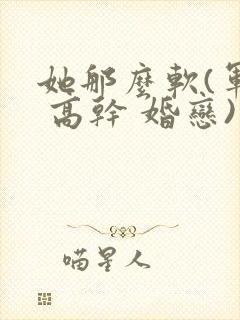 她那麼軟(軍
高幹 婚戀)
喵星人